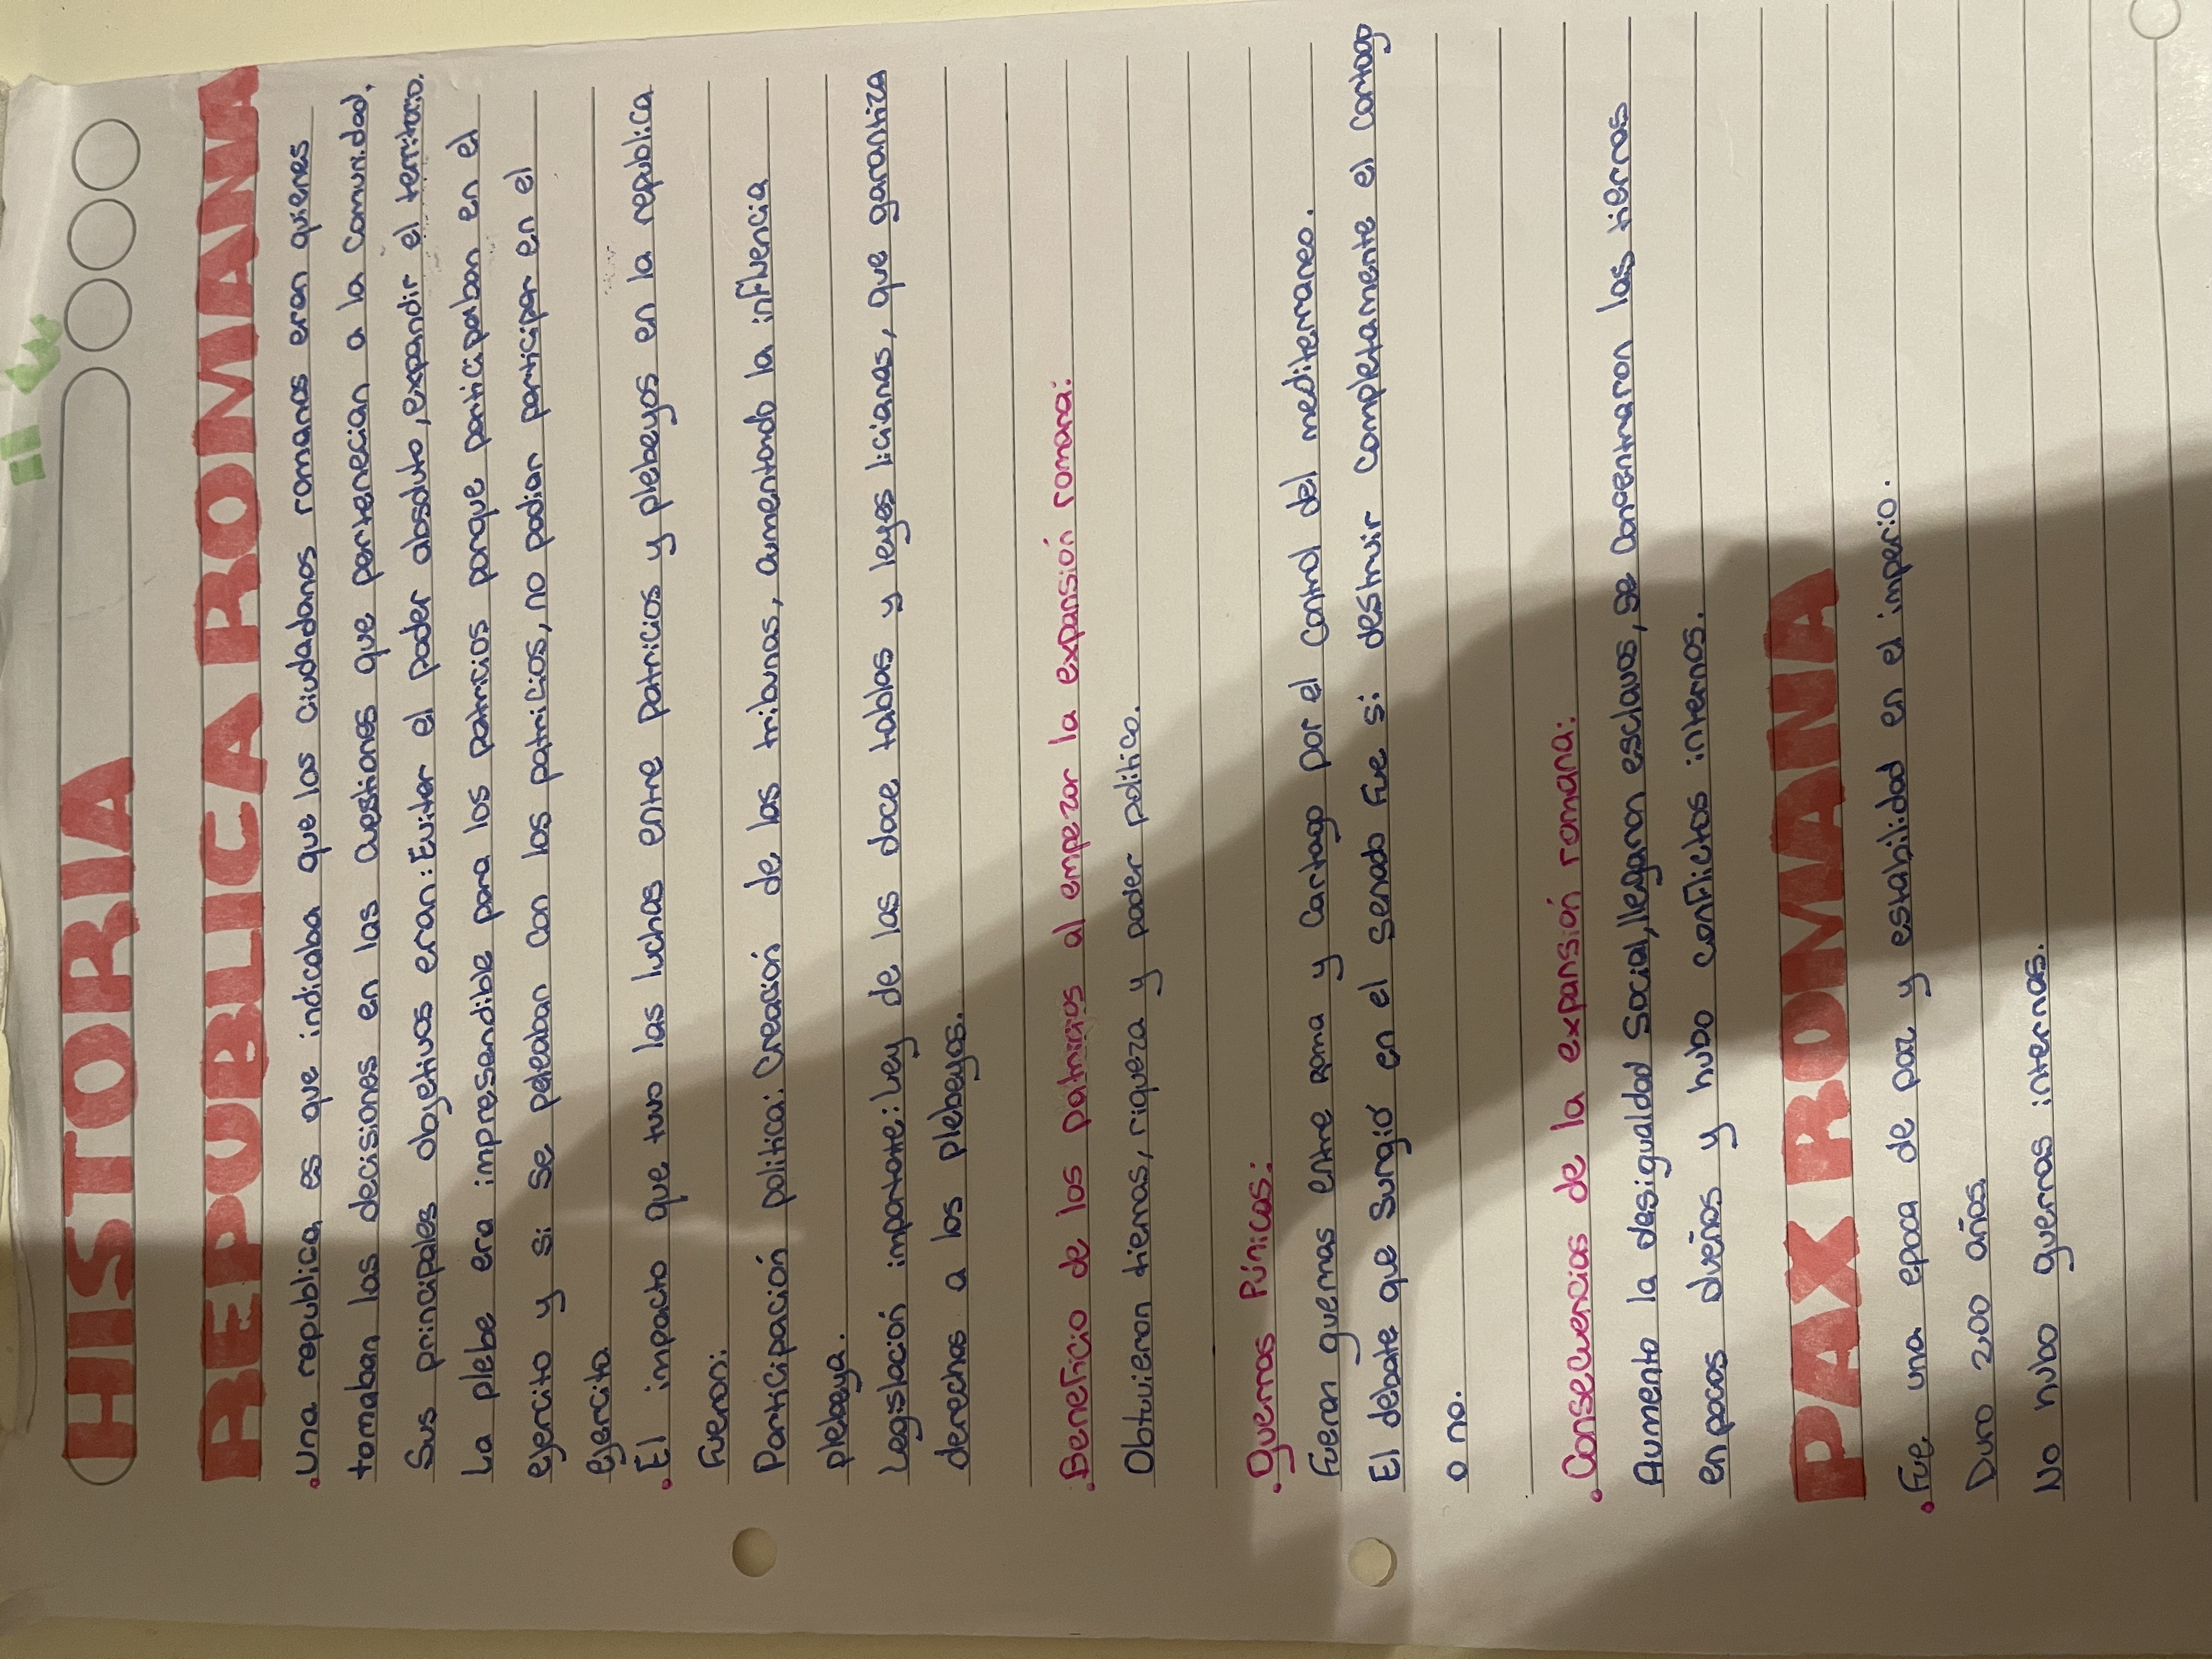 HISTORIA
REPUBLICA ROMANA
• Una republica es que indicaba que los ciudadanos romanos eran quienes
tomaban las decisiones en las cuestiones que pertenecian a la comunidad.
Sus principales objetivos eran: Evitar el poder absoluto, expandir el territorio.
La plebe era impresendible para los patricios porque participaban en el
ejercito y si se peleaban con los patricios, no podian participar en el
ejercito.
• El impacto que tuvo las luchas entre patricios y plebeyos en la republica
fueron:
Participación politica: Creación de las tribunas, aumentando la influencia
plebeya.
Legislación importante: Ley de las doce tablas y leyes licianas, que garantiza
derechos a los plebeyos.
• Beneficio de los patricios al empezar la expansión romana:
Obtuvieron tierras, riqueza y poder politico.
• Guerras Púnicas:
Fueron guerras entre Roma y Cartago por el control del mediterraneo.
El debate que surgió en el senado fue si destruir completamente el cartago
o no.
• Consecuencias de la expansión romana:
Aumento la desigualdad social, llegaron esclavos, se concentraron las tierras
en pocos dueños y hubo conflictos internos.
PAX ROMANA
• Fue una epoca de paz y estabilidad en el imperio.
Duro 200 años.
No hubo guerras internas.